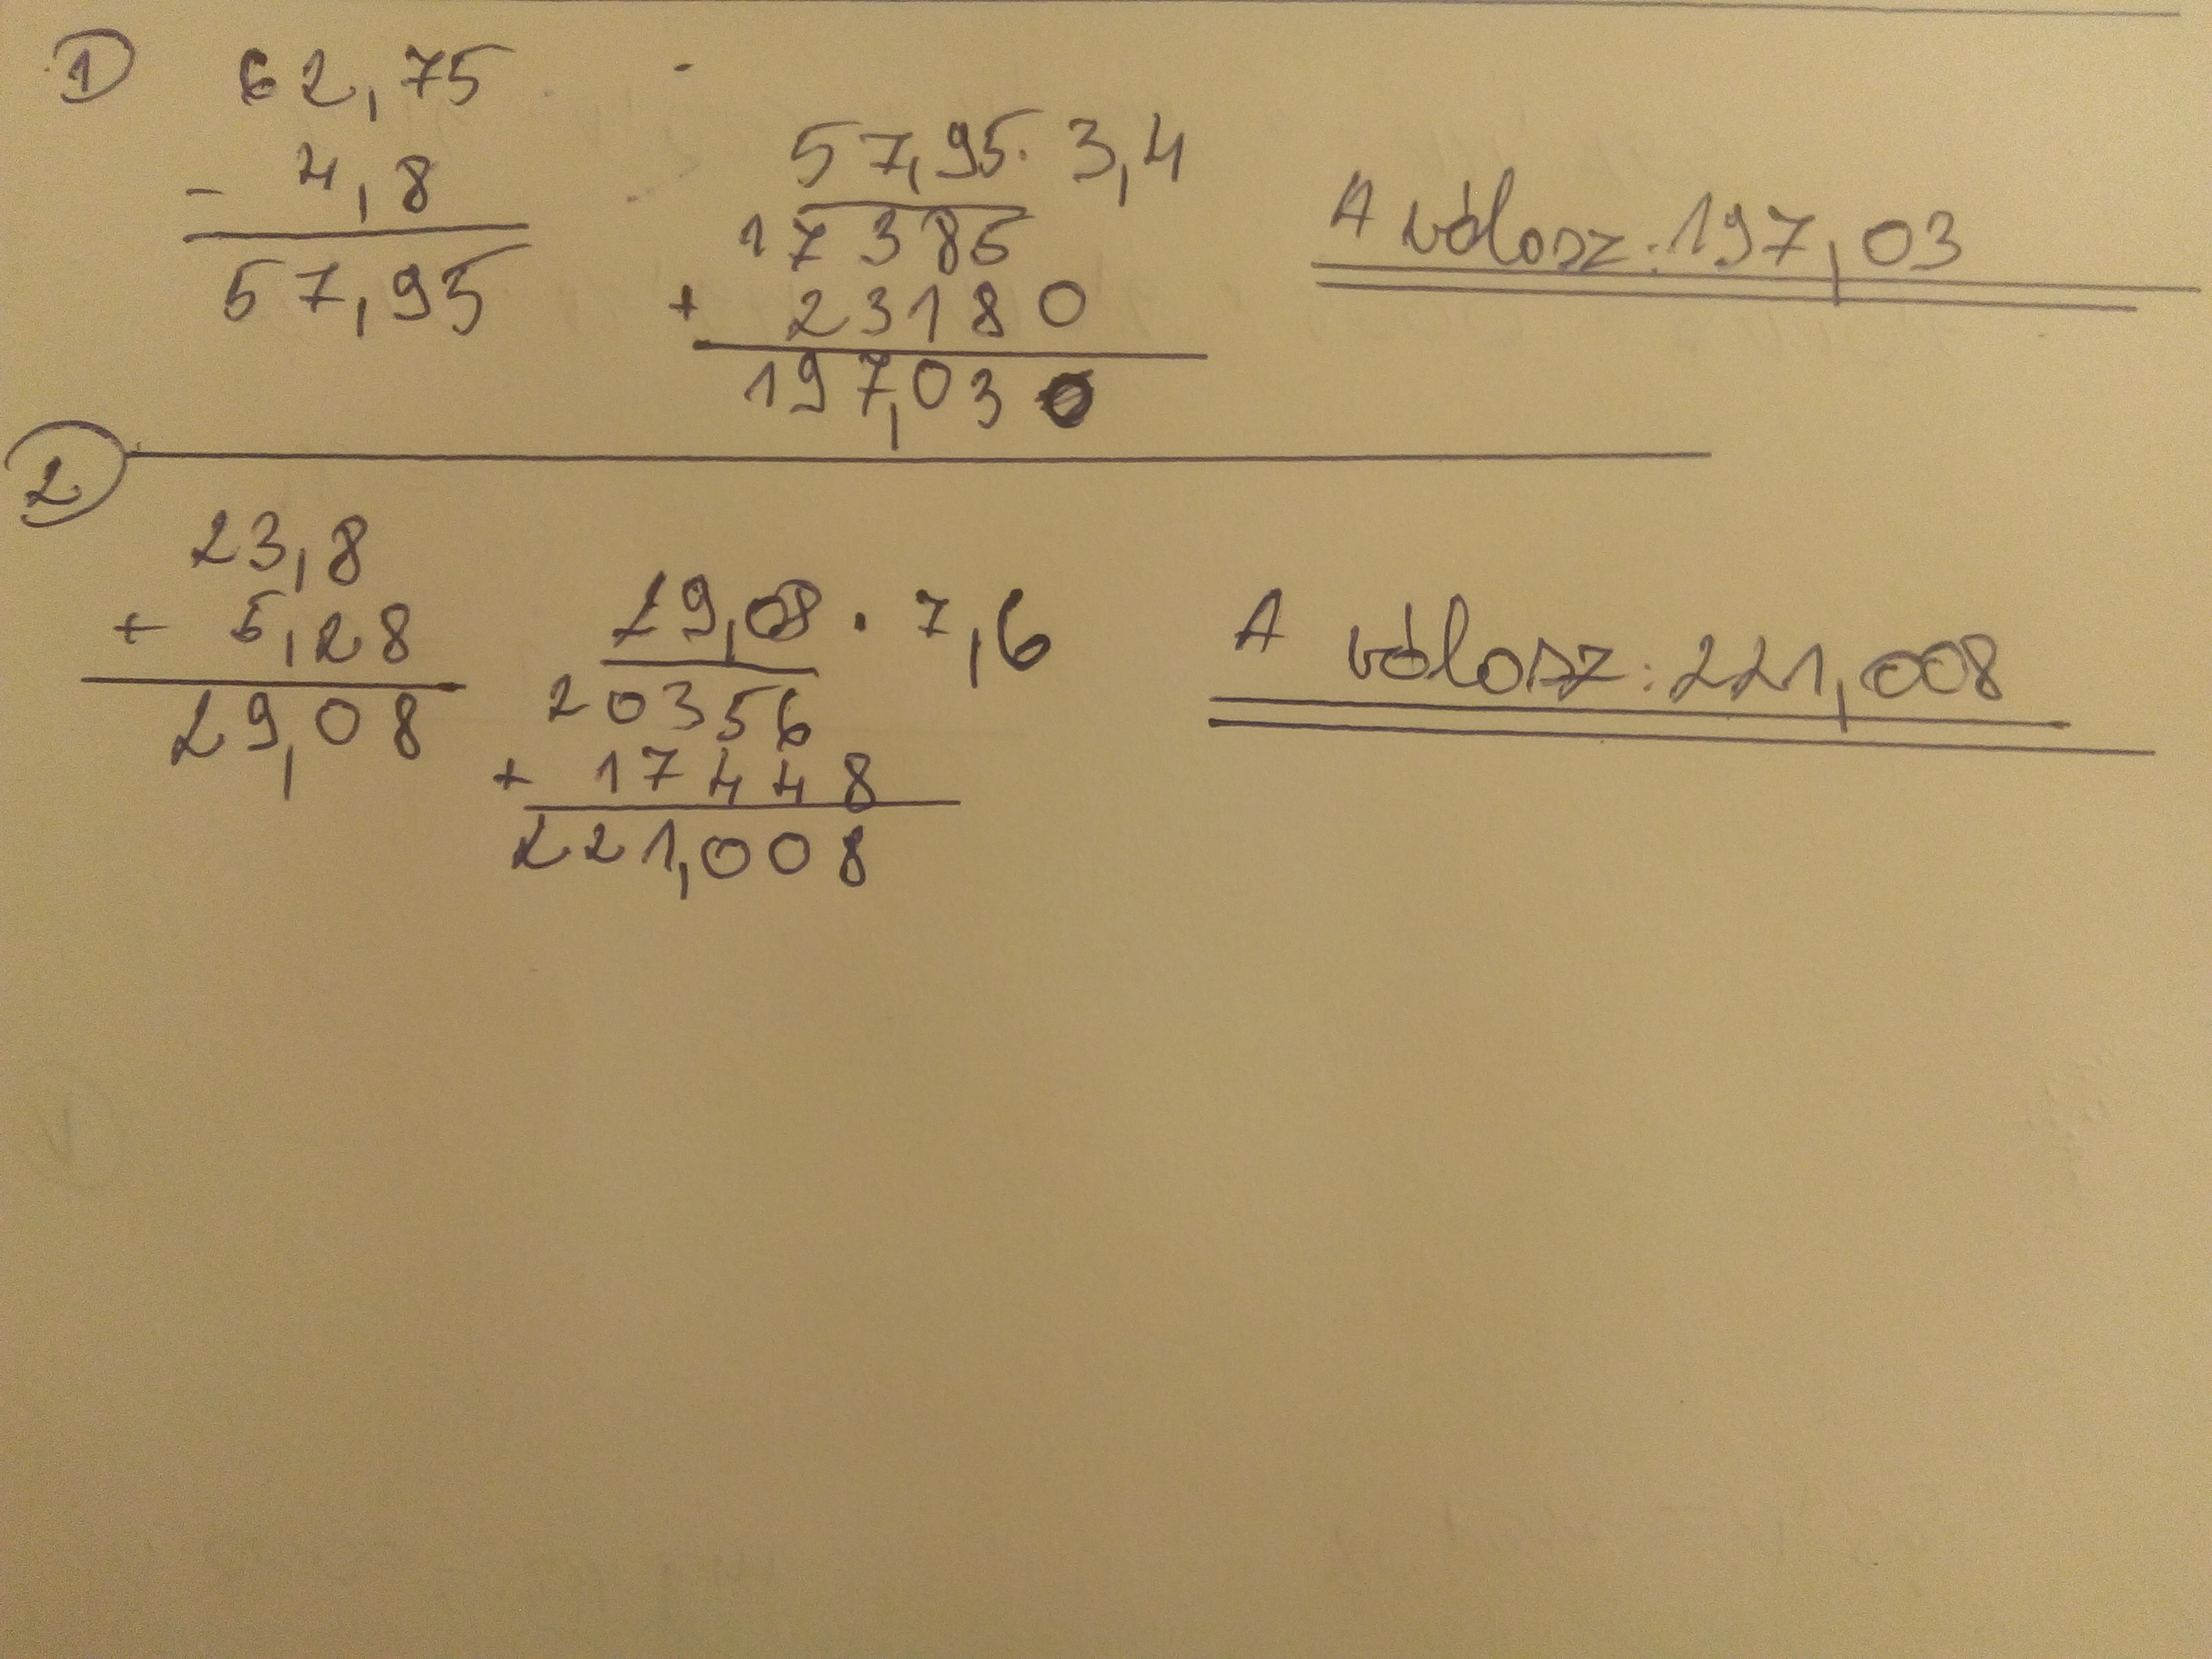 1)
62,75
- 4,8
57,95
57,95 · 3,4
17385
+ 23180
197,030
A válasz: 197,03
2
23,8
+ 5,28
29,08
29,08 · 7,6
20356
+ 17448
221,008
A válasz: 221,008